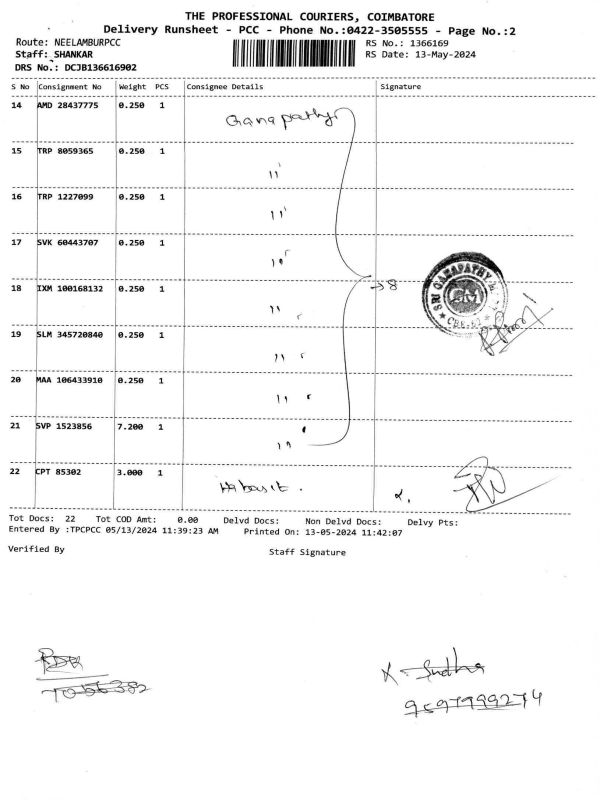 THE PROFESSIONAL COURIERS, COIMBATORE
Delivery Runsheet - PCC - Phone No.:0422-3505555 - Page No.:2
Route: NEELAMBURPCC RS No.: 1366169
Staff: SHANKAR RS Date: 13-May-2024
DRS No.: DCJB136616902
S No Consignment No Weight PCS Consignee Details Signature
14 AMD 28437775 0.250 1 Ganapathy
15 TRP 8059365 0.250 1 "
16 TRP 1227099 0.250 1 "
17 SVK 60443707 0.250 1 "
18 IXM 100168132 0.250 1 " → 8
19 SLM 345720840 0.250 1 "
20 MAA 106433910 0.250 1 "
21 SVP 1523856 7.200 1 "
22 CPT 85302 3.000 1
SRI GANAPATHY
Tot Docs: 22 Tot COD Amt: 0.00 Delvd Docs: Non Delvd Docs: Delvy Pts:
Entered By :TPCPCC 05/13/2024 11:39:23 AM Printed On: 13-05-2024 11:42:07
Verified By Staff Signature
K Sudha